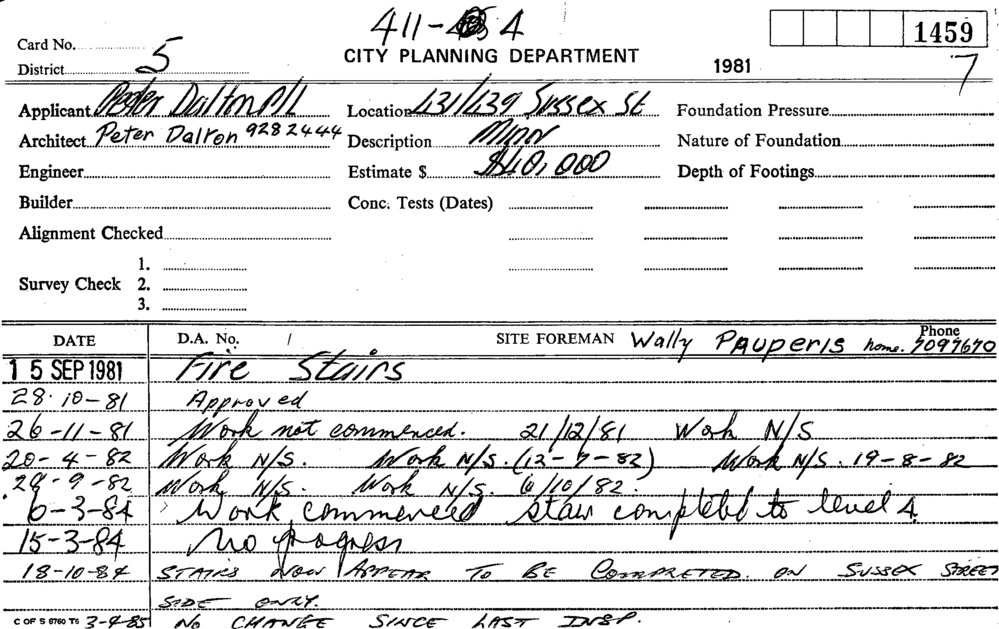 411-4
1459
Card No.
5
CITY PLANNING DEPARTMENT
1981
7
District
Applicant Peter Dalton P/L
Location 431/439 Sussex St
Foundation Pressure
Architect Peter Dalton 9282444
Description Minor
Nature of Foundation
Engineer
Estimate $ $40,000
Depth of Footings
Builder
Conc. Tests (Dates)
Alignment Checked
1.
Survey Check 2.
3.
DATE D.A. No. / SITE FOREMAN Wally PAUPERIS Phone home. 7097670
15 SEP 1981 Fire Stairs
28-10-81 Approved
26-11-81 Work not commenced. 21/12/81 Work N/S
20-4-82 Work N/S. Work N/S. (12-7-82) Work N/S. 19-8-82
29-9-82 Work N/S. Work N/S. 6/10/82.
6-3-84 Work commenced stair completed to level 4.
15-3-84 No progress
18-10-84 STAIRS NOW APPEAR TO BE COMPLETED. ON SUSSEX STREET
SIDE ONLY.
C OF S 6760 T6 3-4-85 NO CHANGE SINCE LAST INSP.